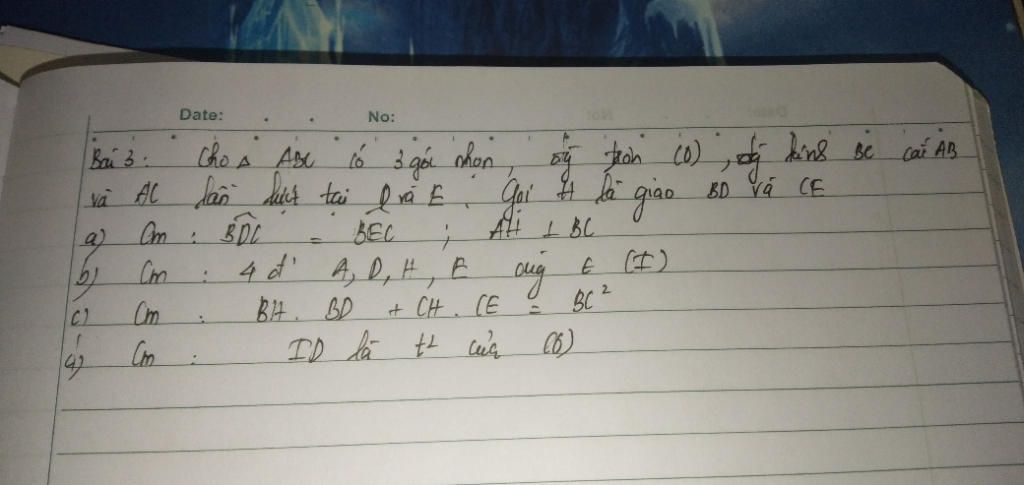 Date: No:
Bài 3: Cho Δ ABC có 3 góc nhọn, đg tròn (O), đg kính BC cắt AB
và AC lần lượt tại D và E. Gọi H là giao BD và CE
a) Cm : BDC = BEC ; AH ⊥ BC
b) Cm : 4 đ' A, D, H, E cùng ∈ (I)
c) Cm : BH. BD + CH. CE = BC²
d) Cm : ID là t² của (O)